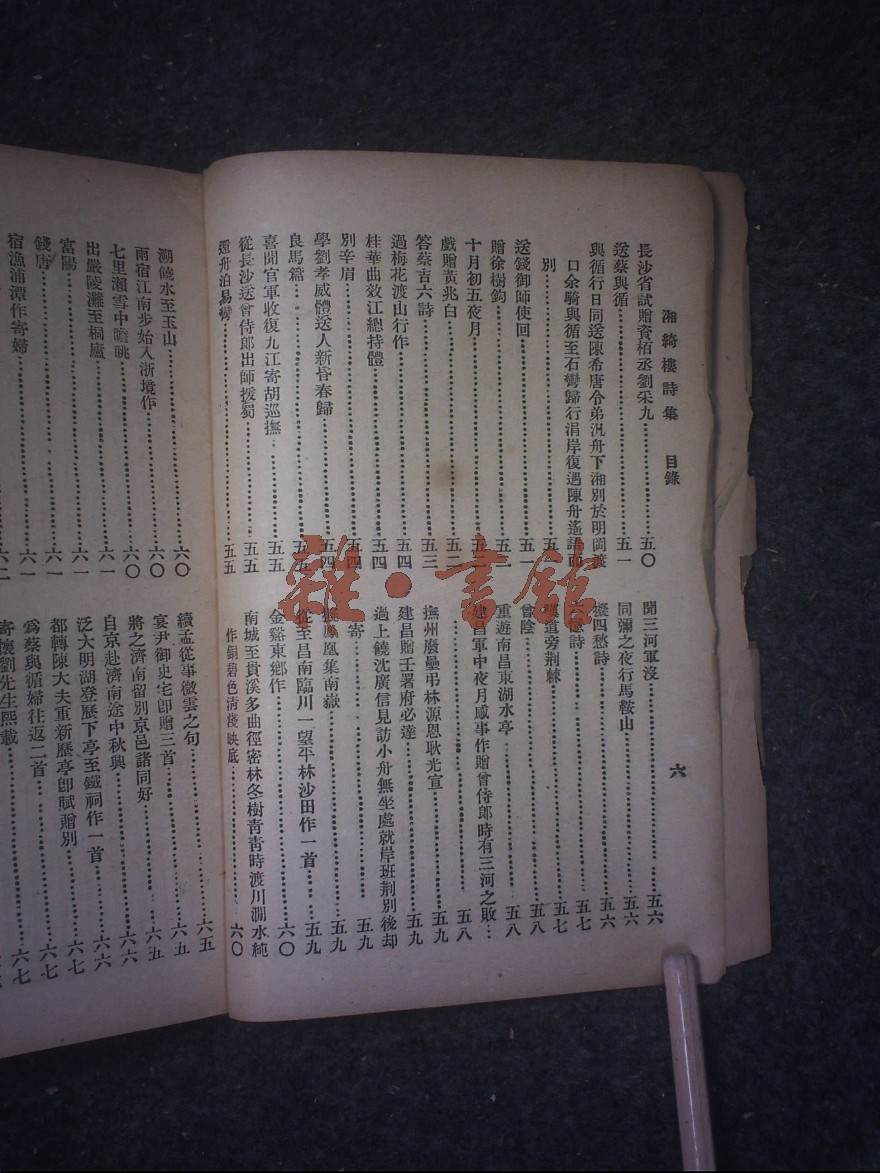 湘綺樓詩集　目錄
六
長沙省試贈資栢丞劉采九……五〇
送蔡與循……五一
與循行日同送陳希唐令弟汎舟下湘別於明岡渡
口余騎與循至石彎歸行涓岸復遇陳舟遙語而
別……五一
送錢御師使回……五一
贈徐樹鈞……五二
十月初五夜月……五二
戲贈黃兆白……五二
答蔡吉六詩……五三
過梅花渡山行作……五四
桂華曲效江總持體……五四
別辛眉……五四
學劉孝威體送人新昏春歸……五四
良馬篇……五五
喜聞官軍收復九江寄胡巡撫……五五
從長沙送曾侍郎出師援蜀……五五
還舟泊易彎……五五
聞三河軍沒……五六
同彌之夜行馬鞍山……五六
擬四愁詩……五六
詩……五七
道旁荆棘……五七
曾陰……五八
重遊南昌東湖水亭……五八
建昌軍中夜月感事作贈曾侍郎時有三河之敗…
……五八
撫州廢壘弔林源恩耿光宣……五九
建昌贈王署府必達……五九
過上饒沈廣信見訪小舟無坐處就岸班荆別後却
寄……五九
鳳凰集南嶽……五九
從至昌南臨川一望平林沙田作一首……五九
金谿東鄉作……六〇
南城至貴溪多曲徑密林冬樹靑靑時渡川澗水純
作銅碧色淸淺映底……六〇
溯饒水至玉山……六〇
雨宿江南步始入浙境作……六〇
七里瀨雪中瞻眺……六〇
出嚴陵灘至桐廬……六一
富陽……六一
錢唐……六一
宿漁浦潭作寄婦……六一
六二
續孟從事微雲之句……六五
宴尹御史宅卽贈三首……六五
將之濟南留別京邑諸同好……六五
自京赴濟南途中秋興……六六
泛大明湖登歷下亭至鐵祠作一首……六六
都轉陳大夫重新歷亭卽賦贈別……六七
爲蔡與循婦往返二首……六七
寄懷劉先生熙載……六七
雜·書館